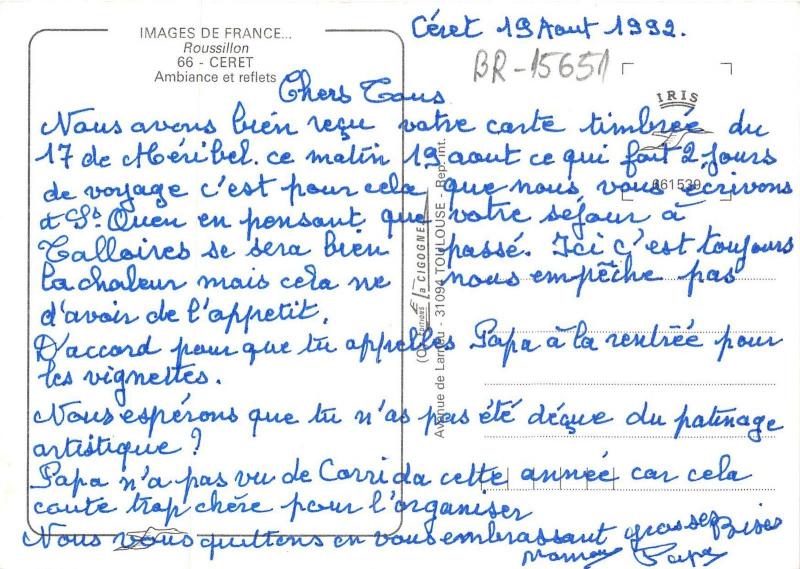 IMAGES DE FRANCE...
Roussillon
66 - CERET
Ambiance et reflets
Céret 19 Aout 1992.
BR-15651
IRIS
661539
Chers Tous
Nous avons bien reçu votre carte timbrée du
17 de Méribel. ce matin 19 aout ce qui fait 2 jours
de voyage c'est pour cela que nous vous écrivons
à St Ouen en pensant que votre séjour à
Talloires se sera bien passé. Ici c'est toujours
la chaleur mais cela ne nous empêche pas
d'avoir de l'appetit.
D'accord pour que tu appelles Papa à la rentrée pour
les vignettes.
Nous espérons que tu n'as pas été déçue du patinage
artistique ?
Papa n'a pas vu de Corrida cette année car cela
coute trop chère pour l'organiser
Nous vous quittons en vous embrassant grosses Bises
Maman Papa
Editions la CIGOGNE
Avenue de Larrieu - 31094 TOULOUSE - Rep. int.